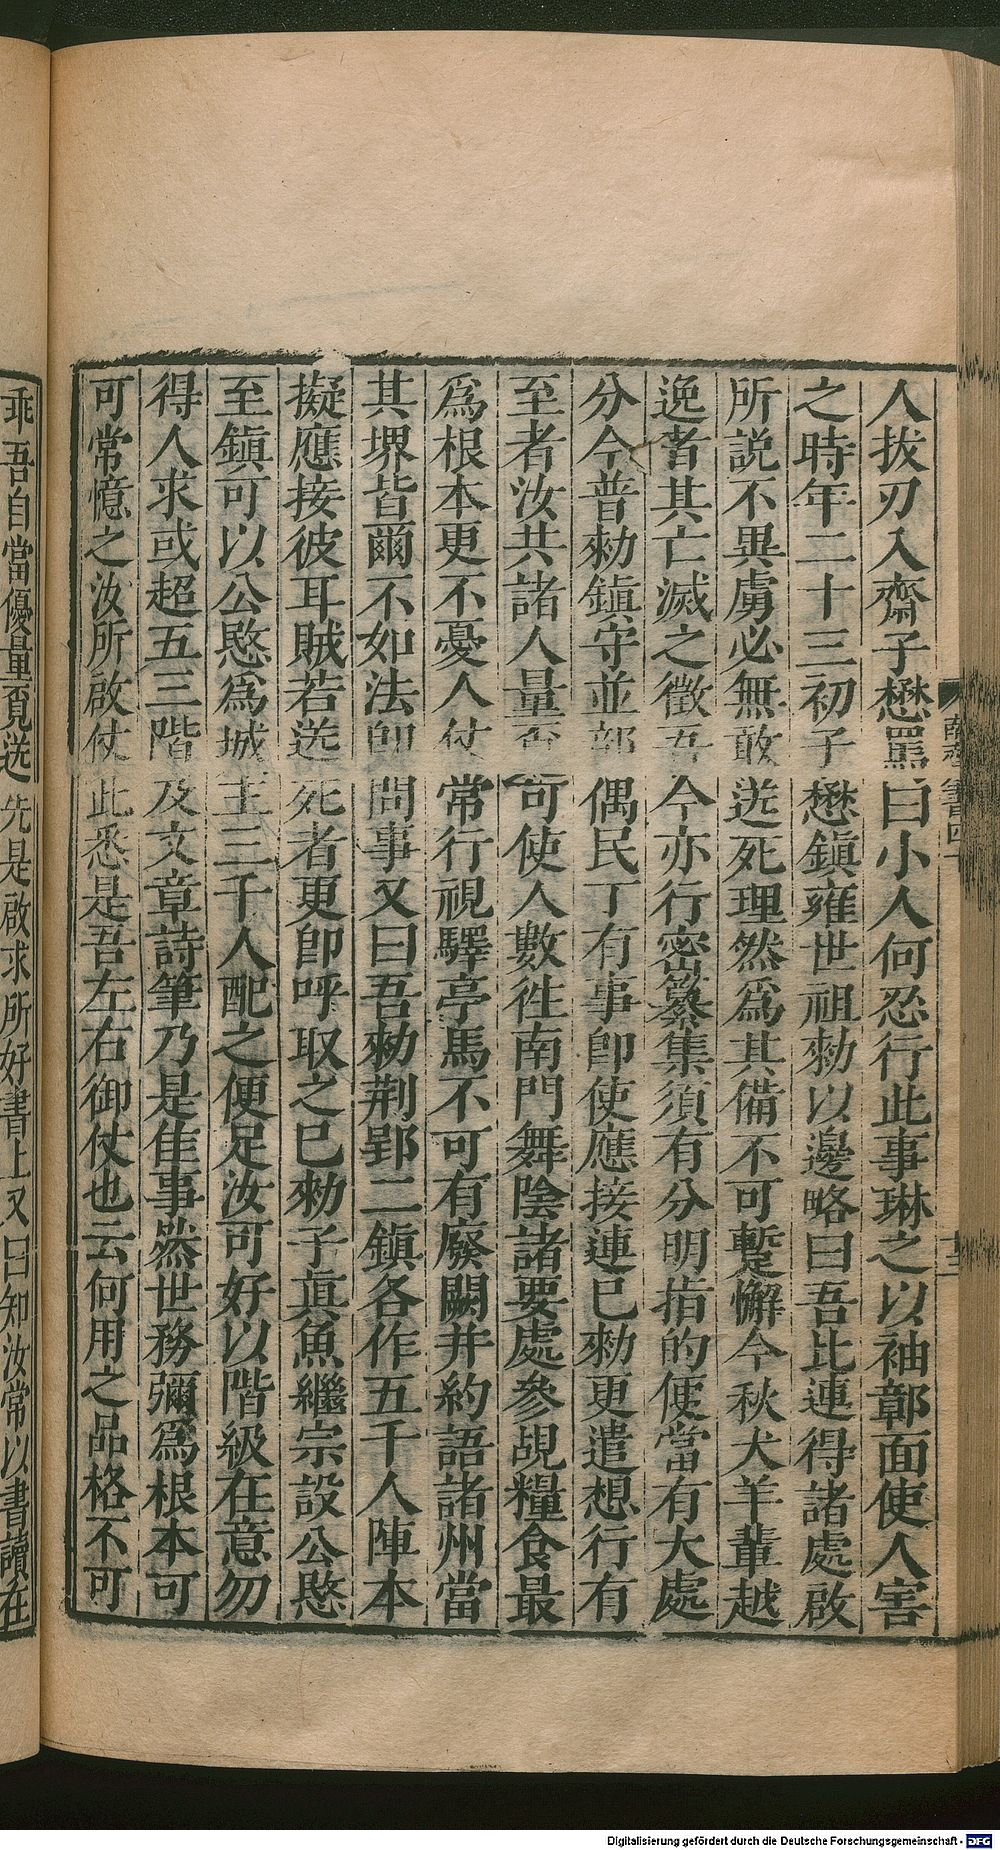 人拔刃入齋子懋罵曰小人何忍行此事琳之以袖鄣面使人害
之時年二十三初子懋鎮雍世祖勑以邊略曰吾比連得諸處啟
所説不異虜必無敢送死理然爲其備不可蹔懈今秋犬羊輩越
逸者其亡滅之徵吾今亦行密纂集須有分明指的便當有大處
分今普勑鎮守並部偶民丁有事即使應接連已勑更遣想行有
至者汝共諸人量 可使人數徃南門舞陰諸要處參覘糧食最
爲根本更不憂人仗常行視驛亭馬不可有廢闕并約語諸州當
其堺皆爾不如法即問事又曰吾勑荆郢二鎮各作五千人陣本
擬應接彼耳賊若送死者更即呼取之已勑子真魚繼宗設公愍
至鎮可以公愍爲城主三千人配之便足汝可好以階級在意勿
得人求或超五三階及文章詩筆乃是佳事然世務彌爲根本可
可常憶之汝所啟仗此悉是吾左右御仗也云何用之品格不可
乖吾自當優量覓送先是啟求所好書上又曰知汝常以書讀在
書四
Digitalisierung gefördert durch die Deutsche Forschungsgemeinschaft - DFG